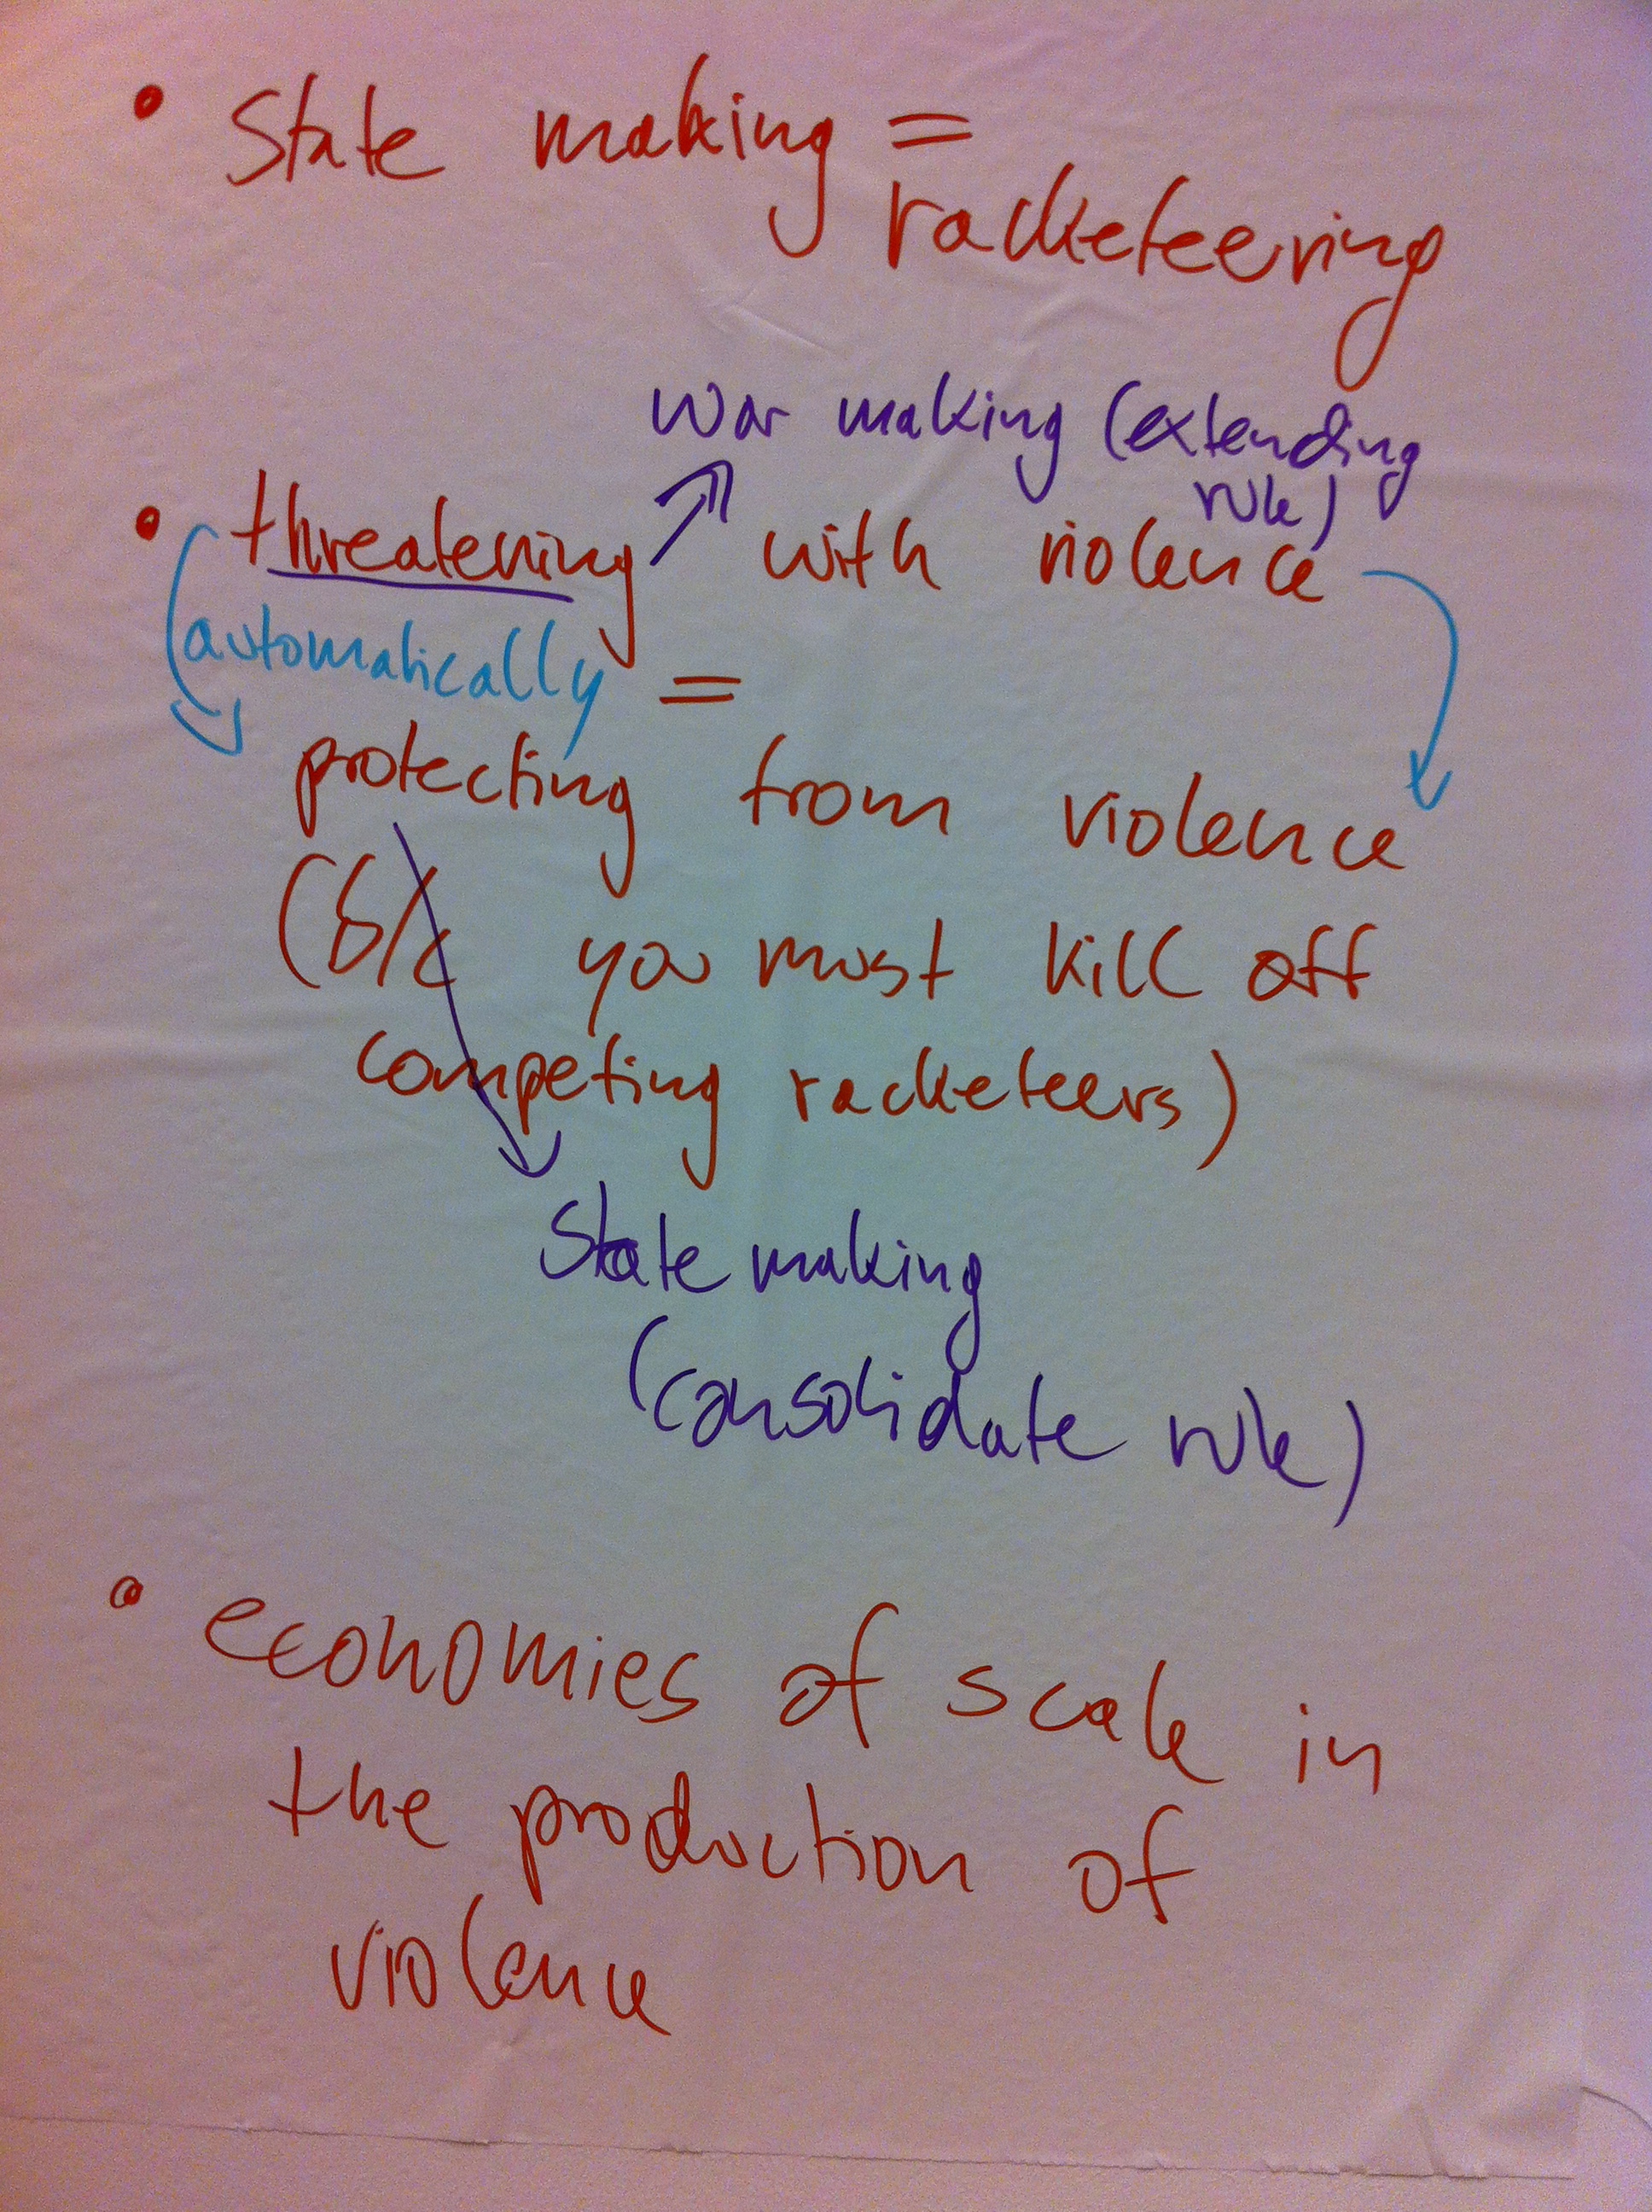 • State making =
racketeering
War making (extending
rule)
• threatening with violence
automatically =
protecting from violence
(b/c you must kill off
competing racketeers)
State making
(consolidate rule)
• economies of scale in
the production of
violence